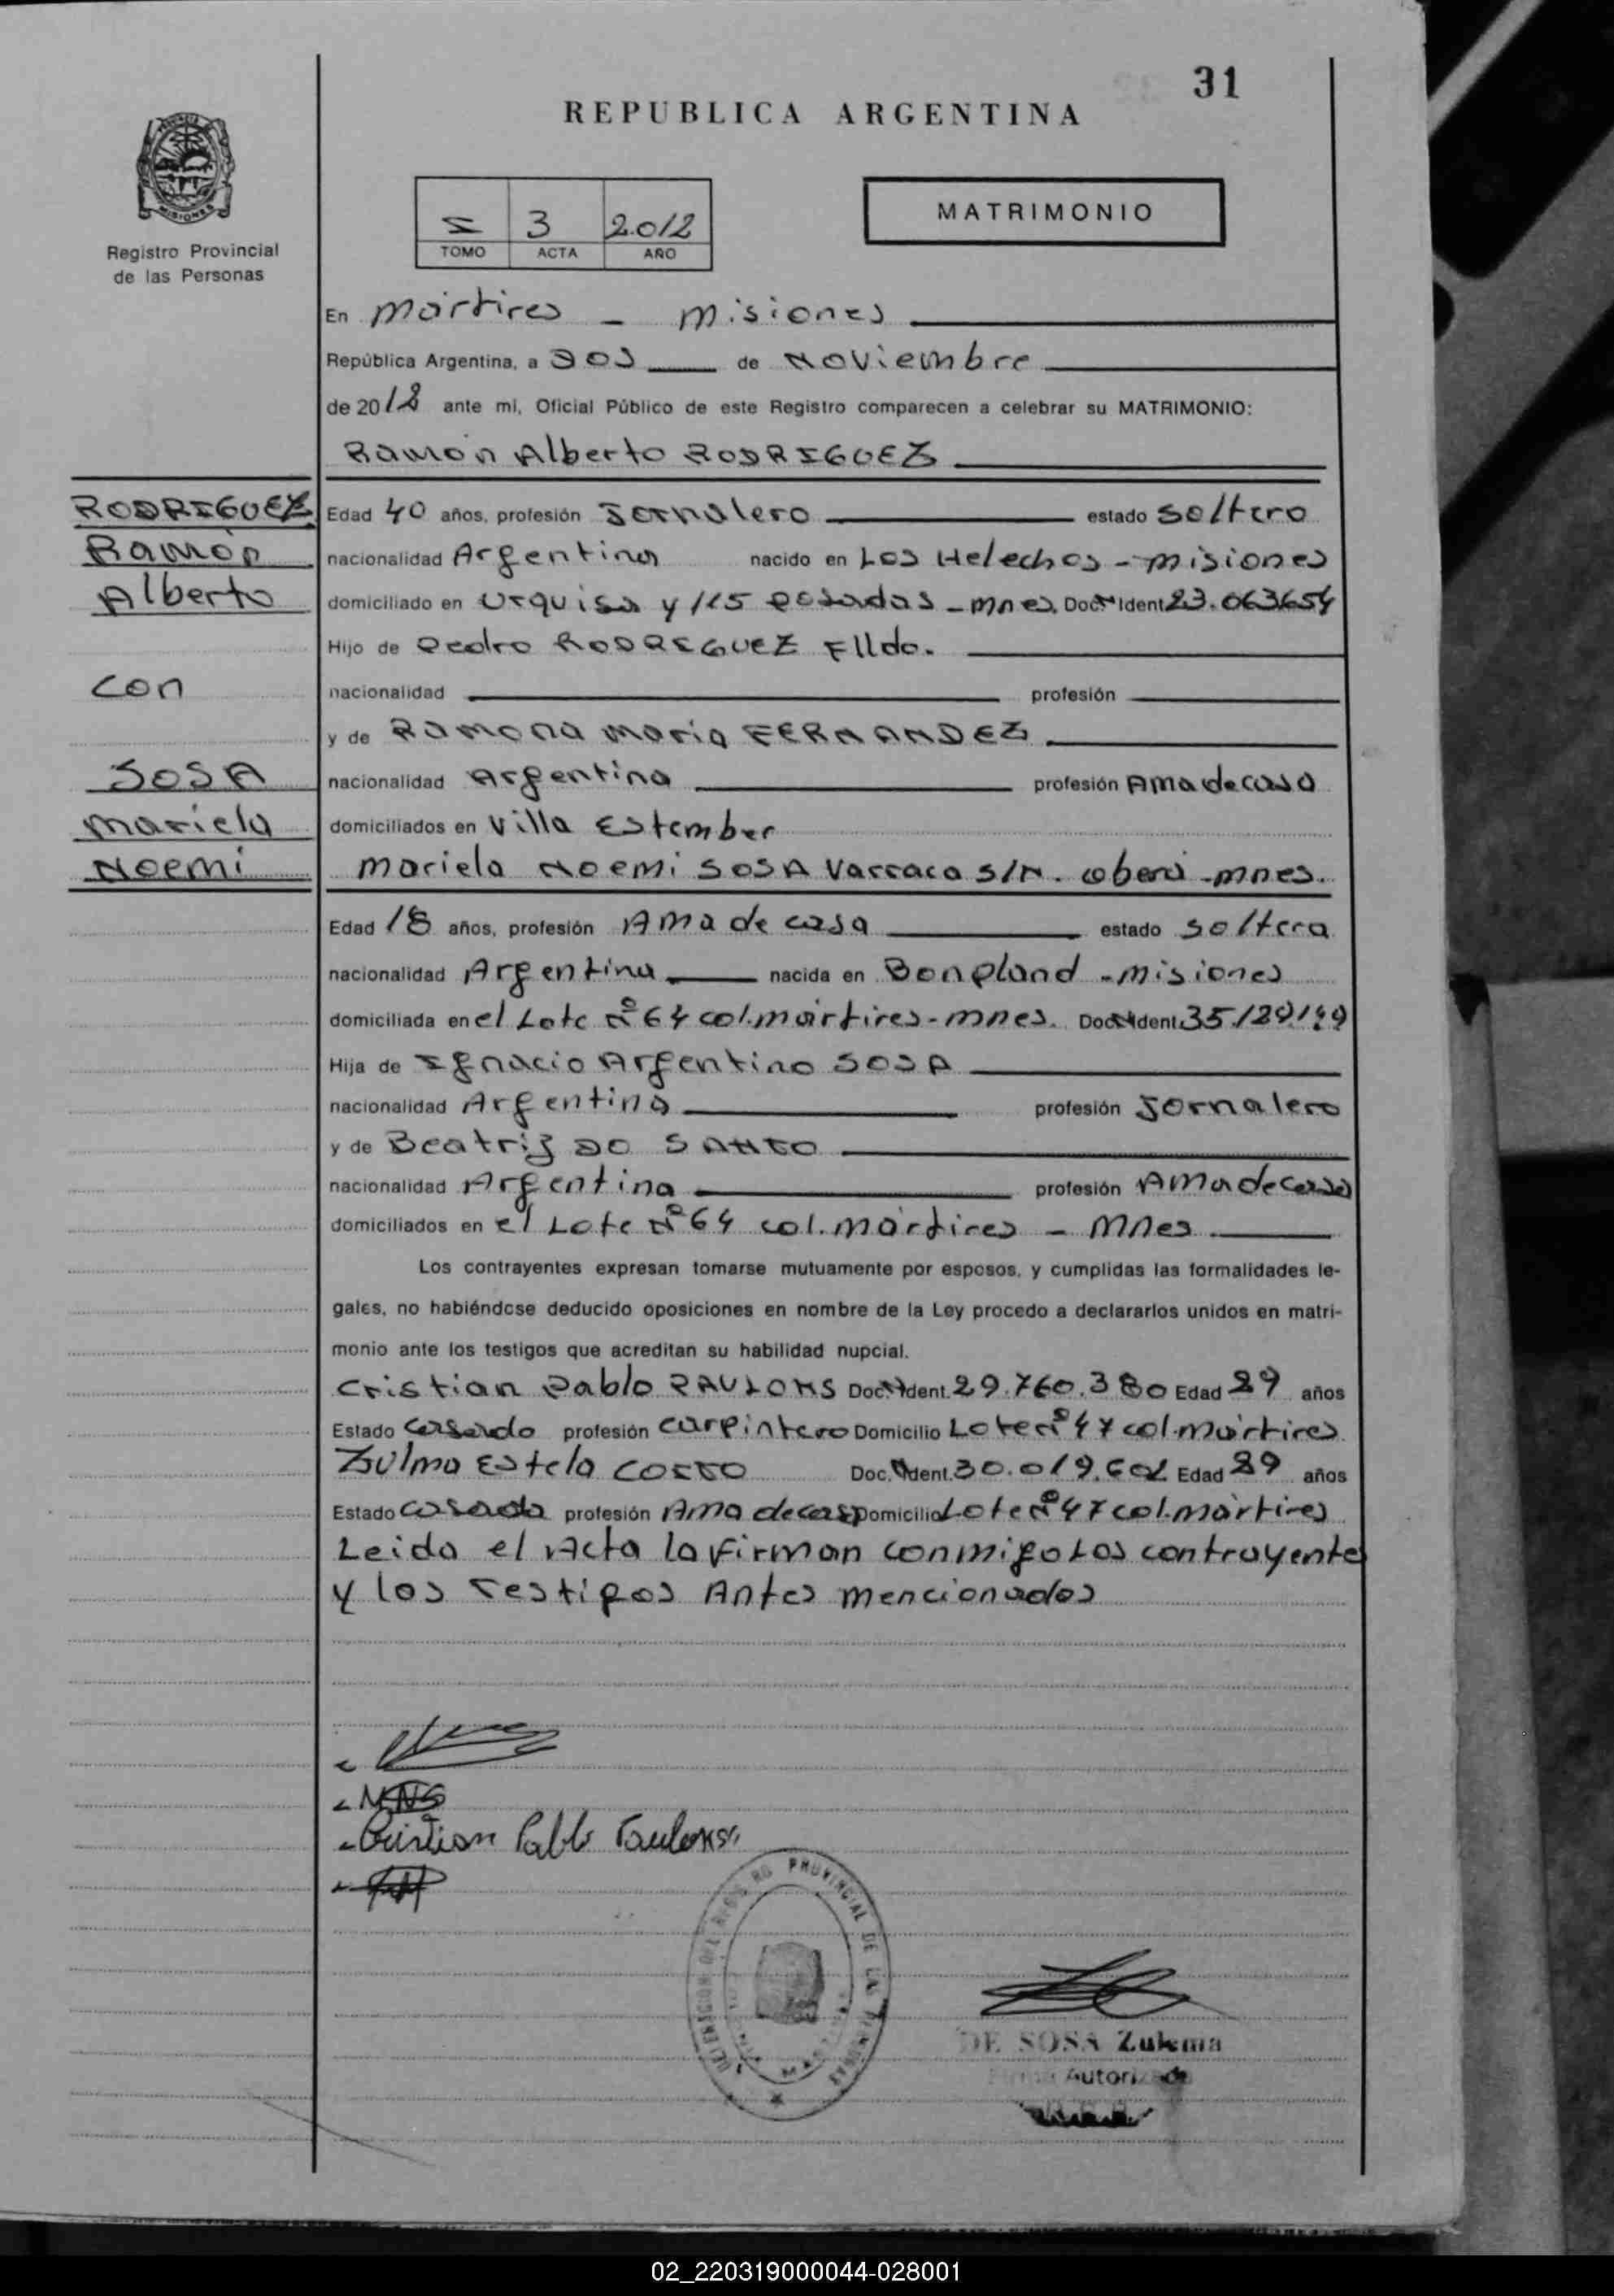 31
REPUBLICA ARGENTINA
Registro Provincial
de las Personas
MISIONES
I 3 2.012
TOMO ACTA AÑO
MATRIMONIO
En Mártires - Misiones
República Argentina, a DOS de Noviembre
de 2012 ante mí, Oficial Público de este Registro comparecen a celebrar su MATRIMONIO:
Ramón Alberto RODRIGUEZ
RODRIGUEZ
Ramón
Alberto
con
SOSA
Mariela
Noemi
Edad 40 años, profesión Jornalero estado soltero
nacionalidad Argentina nacido en Los Helechos - Misiones
domiciliado en Urquisa y 115 Posadas - Mnes. Doc. Ident. 23.063654
Hijo de Pedro RODRIGUEZ Flldo.
nacionalidad profesión
y de Ramona Maria FERNANDEZ
nacionalidad Argentina profesión Ama de casa
domiciliados en Villa Estember
Mariela Noemi SOSA Varraca S/N. Oberá - Mnes.
Edad 18 años, profesión Ama de casa estado soltera
nacionalidad Argentina nacida en Bonpland - Misiones
domiciliada en el Lote Nº 64 col. Mártires - Mnes. Doc. Ident.
Hija de Ignacio Argentino SOSA
nacionalidad Argentina profesión Jornalero
y de Beatriz DO SANTO
nacionalidad Argentina profesión Ama de casa
domiciliados en el Lote Nº 64 col. Mártires - Mnes
Los contrayentes expresan tomarse mutuamente por esposos, y cumplidas las formalidades le-
gales, no habiéndose deducido oposiciones en nombre de la Ley procedo a declararlos unidos en matri-
monio ante los testigos que acreditan su habilidad nupcial.
Cristian Pablo PAULONS Doc. Ident. 29.760.380 Edad 29 años
Estado casado profesión carpintero Domicilio Lote Nº 47 col. Mártires
Zulma Estela COSTO Doc. Ident. Edad 29 años
Estado casada profesión Ama de casa Domicilio Lote Nº 47 col. Mártires
Leida el Acta la firman conmigo Los contrayente
y los Testigos Antes mencionados
MNS
Cristian Pablo Paulons
PROVINCIAL DE LAS PERSONAS
DE SOSA Zulema
Firma Autorizada
02_220319000044-028001